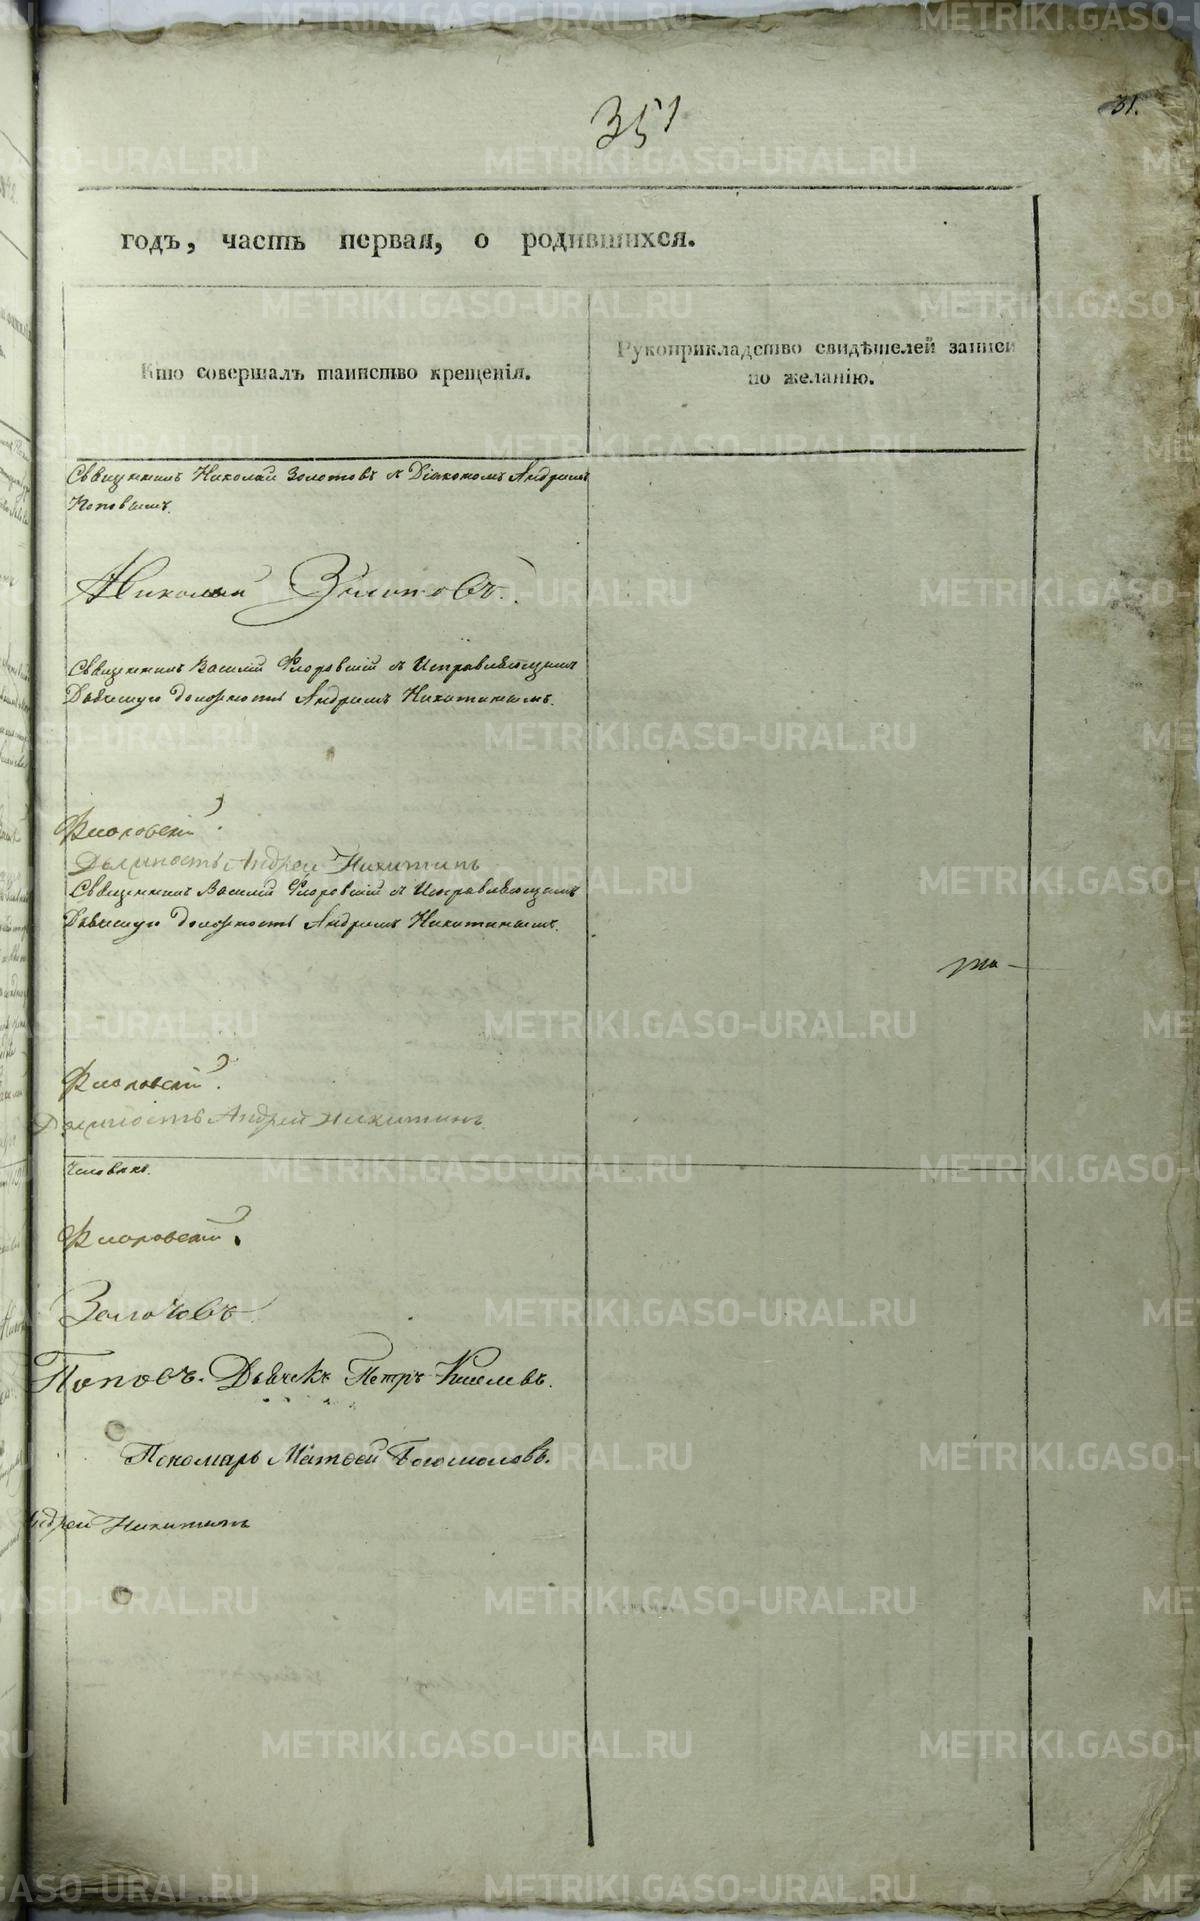 351
31.
годъ, часть первая, о родившихся.
Кто совершалъ таинство крещенія.
Рукоприкладство свидѣтелей записи
по желанію.
Священникъ Николай Золотовъ съ Діакономъ Андреемъ
Поповымъ.
Николай Золотовъ.
Священникъ Василій Флоровскій съ Исправляющимъ
Дьячую должность Андреемъ Никитинымъ.
Флоровскій
Должность Андрей Никитинъ
Священникъ Василій Флоровскій съ Исправляющимъ
Дьячую должность Андреемъ Никитинымъ.
Флоровскій.
Должность Андрей Никитинъ
Человѣкъ.
Флоровскій.
Золотовъ
Поповъ. Дьячекъ Петръ Киселевъ.
Пономарь Матѳей Богомоловъ.
Андрей Никитинъ
METRIKI.GASO-URAL.RU